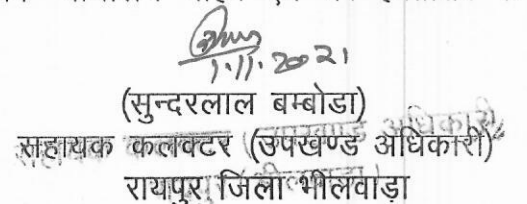 1.11.2021
(सुन्दरलाल बम्बोडा)
सहायक कलक्टर (उपखण्ड अधिकारी)
रायपुर जिला भीलवाड़ा